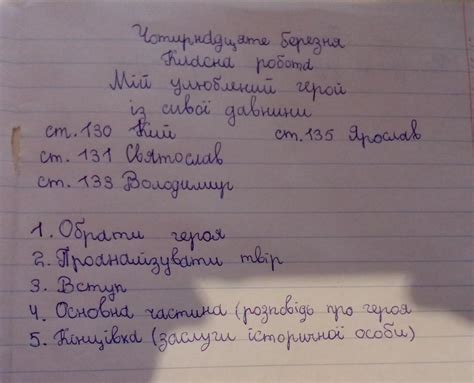 Чотирнадцяте березня
Класна робота
Мій улюблений герой
із сивої давнини
ст. 130 Кий ст. 135 Ярослав
ст. 131 Святослав
ст. 133 Володимир
1. Обрати героя
2. Проаналізувати твір
3. Вступ
4. Основна частина (розповідь про героя
5. Кінцівка (заслуги історичної особи)